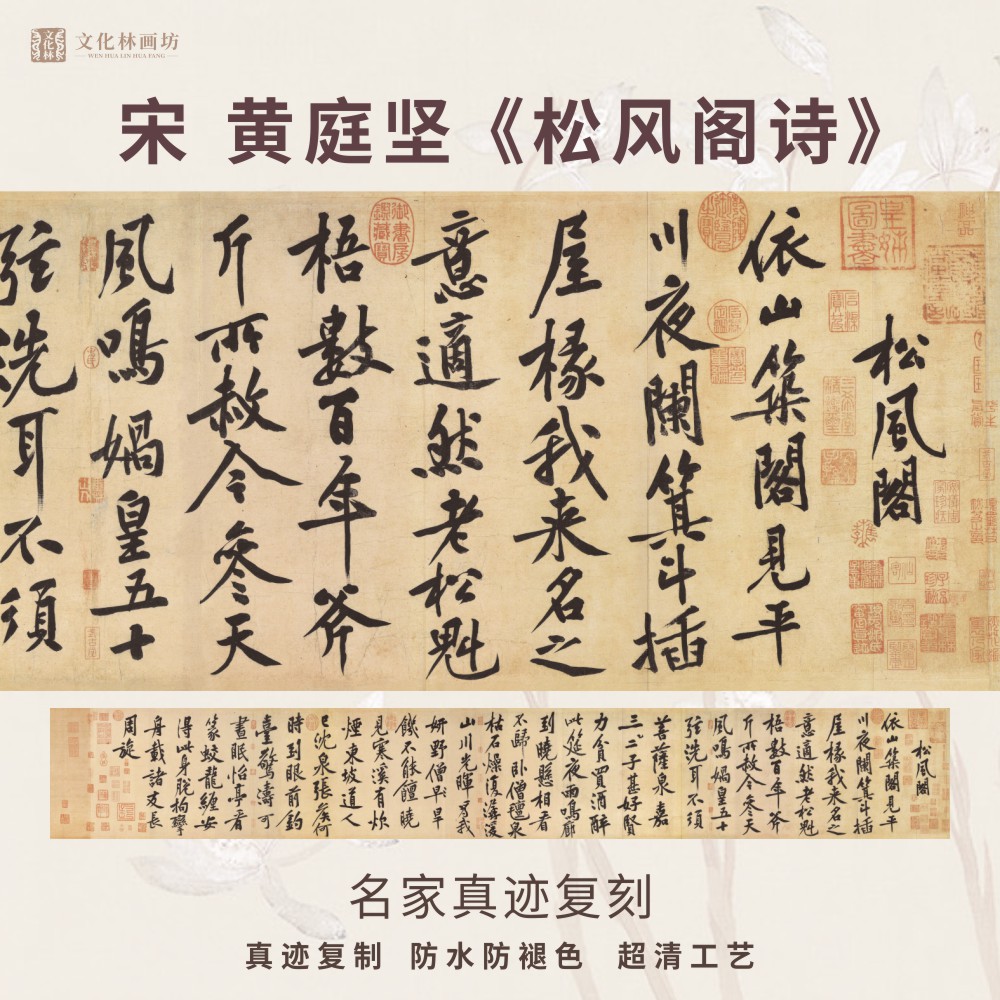 文化林
文化林画坊
WEN HUA LIN HUA FANG
宋 黄庭坚《松风阁诗》
松風閣
依山築閣見平
川夜闌箕斗插
屋椽我来名之
意適然老松魁
梧數百年斧
斤所赦令參天
風鳴媧皇五十
弦洗耳不須
皇姊圖書
御書房鑑藏寶
松風閣
依山築閣見平
川夜闌箕斗插
屋椽我来名之
意適然老松魁
梧數百年斧
斤所赦令參天
風鳴媧皇五十
弦洗耳不須
菩薩泉嘉
三二子甚好賢
力貧買酒醉
此筵夜雨鳴廊
到曉懸相看
不歸卧僧氈泉
枯石燥復潺湲
山川光暉為我
妍野僧早旱
饑不能饘曉
見寒溪有炊
煙東坡道人
已沈泉張侯何
時到眼前釣
臺驚濤可
晝眠怡亭看
篆蛟龍纏安
得此身脫拘攣
舟載諸友長
周旋
名家真迹复刻
真迹复制 防水防褪色 超清工艺